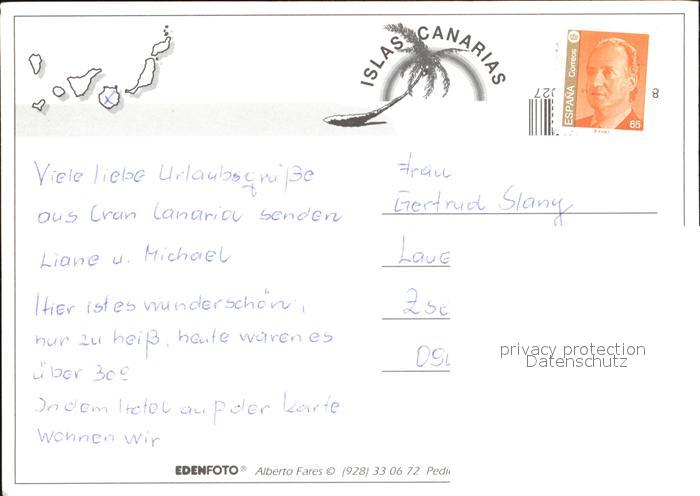 ISLAS CANARIAS
ESPAÑA Correos
65
Viele liebe Urlaubsgrüße
aus Gran Canaria senden
Liane u. Michael
Hier ist es wunderschön,
nur zu heiß, heute waren es
über 30°
In dem Hotel auf der Karte
wohnen wir
Frau
Gertrud Slany
privacy protection
Datenschutz
EDENFOTO® Alberto Fares © (928) 33 06 72